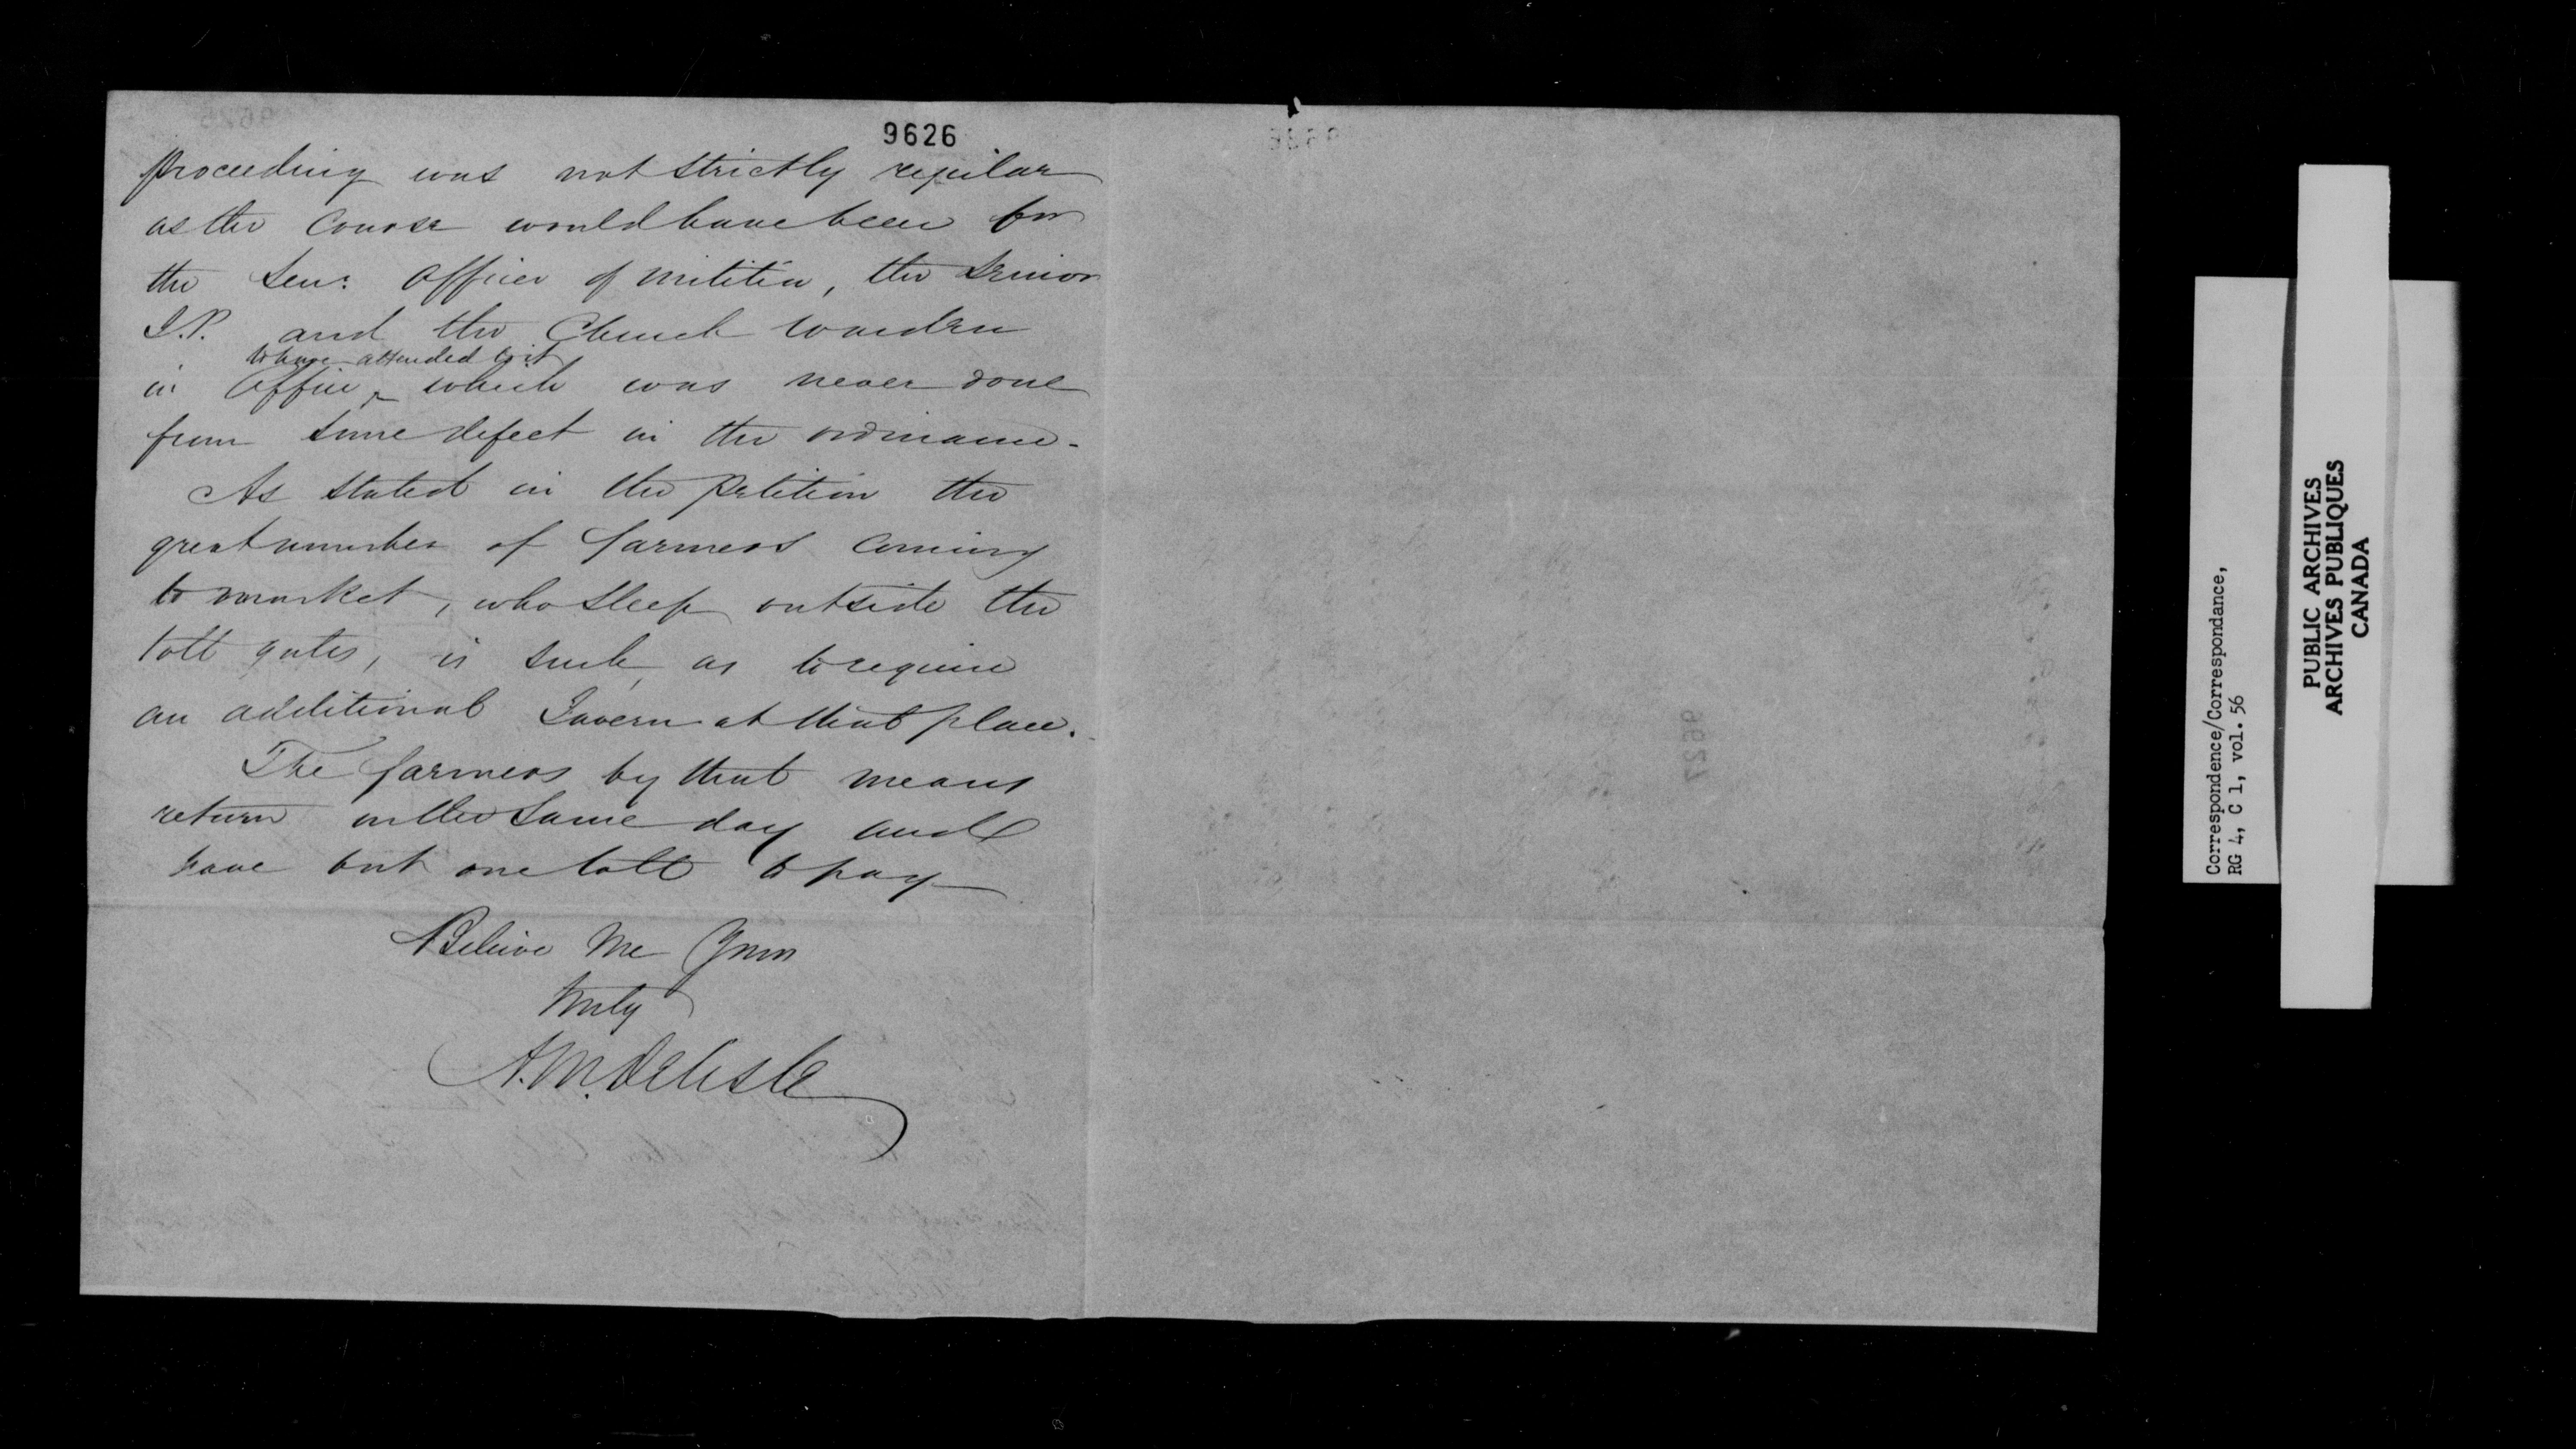 9626
proceeding was not strictly regular
as the Course would have been for
the Sen: Officer of militia, the Senior
J.P. and the Church warden
to have attended to it
in Office, which was never done
from some defect in the ordinance.
As stated in the Petition the
great number of farmers coming
to market, who sleep outside the
toll gates, is such, as to require
an additional Tavern at that place.
The farmers by that means
return on the same day and
have but one toll to pay
Believe me Yours
truly
A.M. Delisle
9627
Correspondence/Correspondance,
RG 4, C 1, vol. 56
PUBLIC ARCHIVES
ARCHIVES PUBLIQUES
CANADA